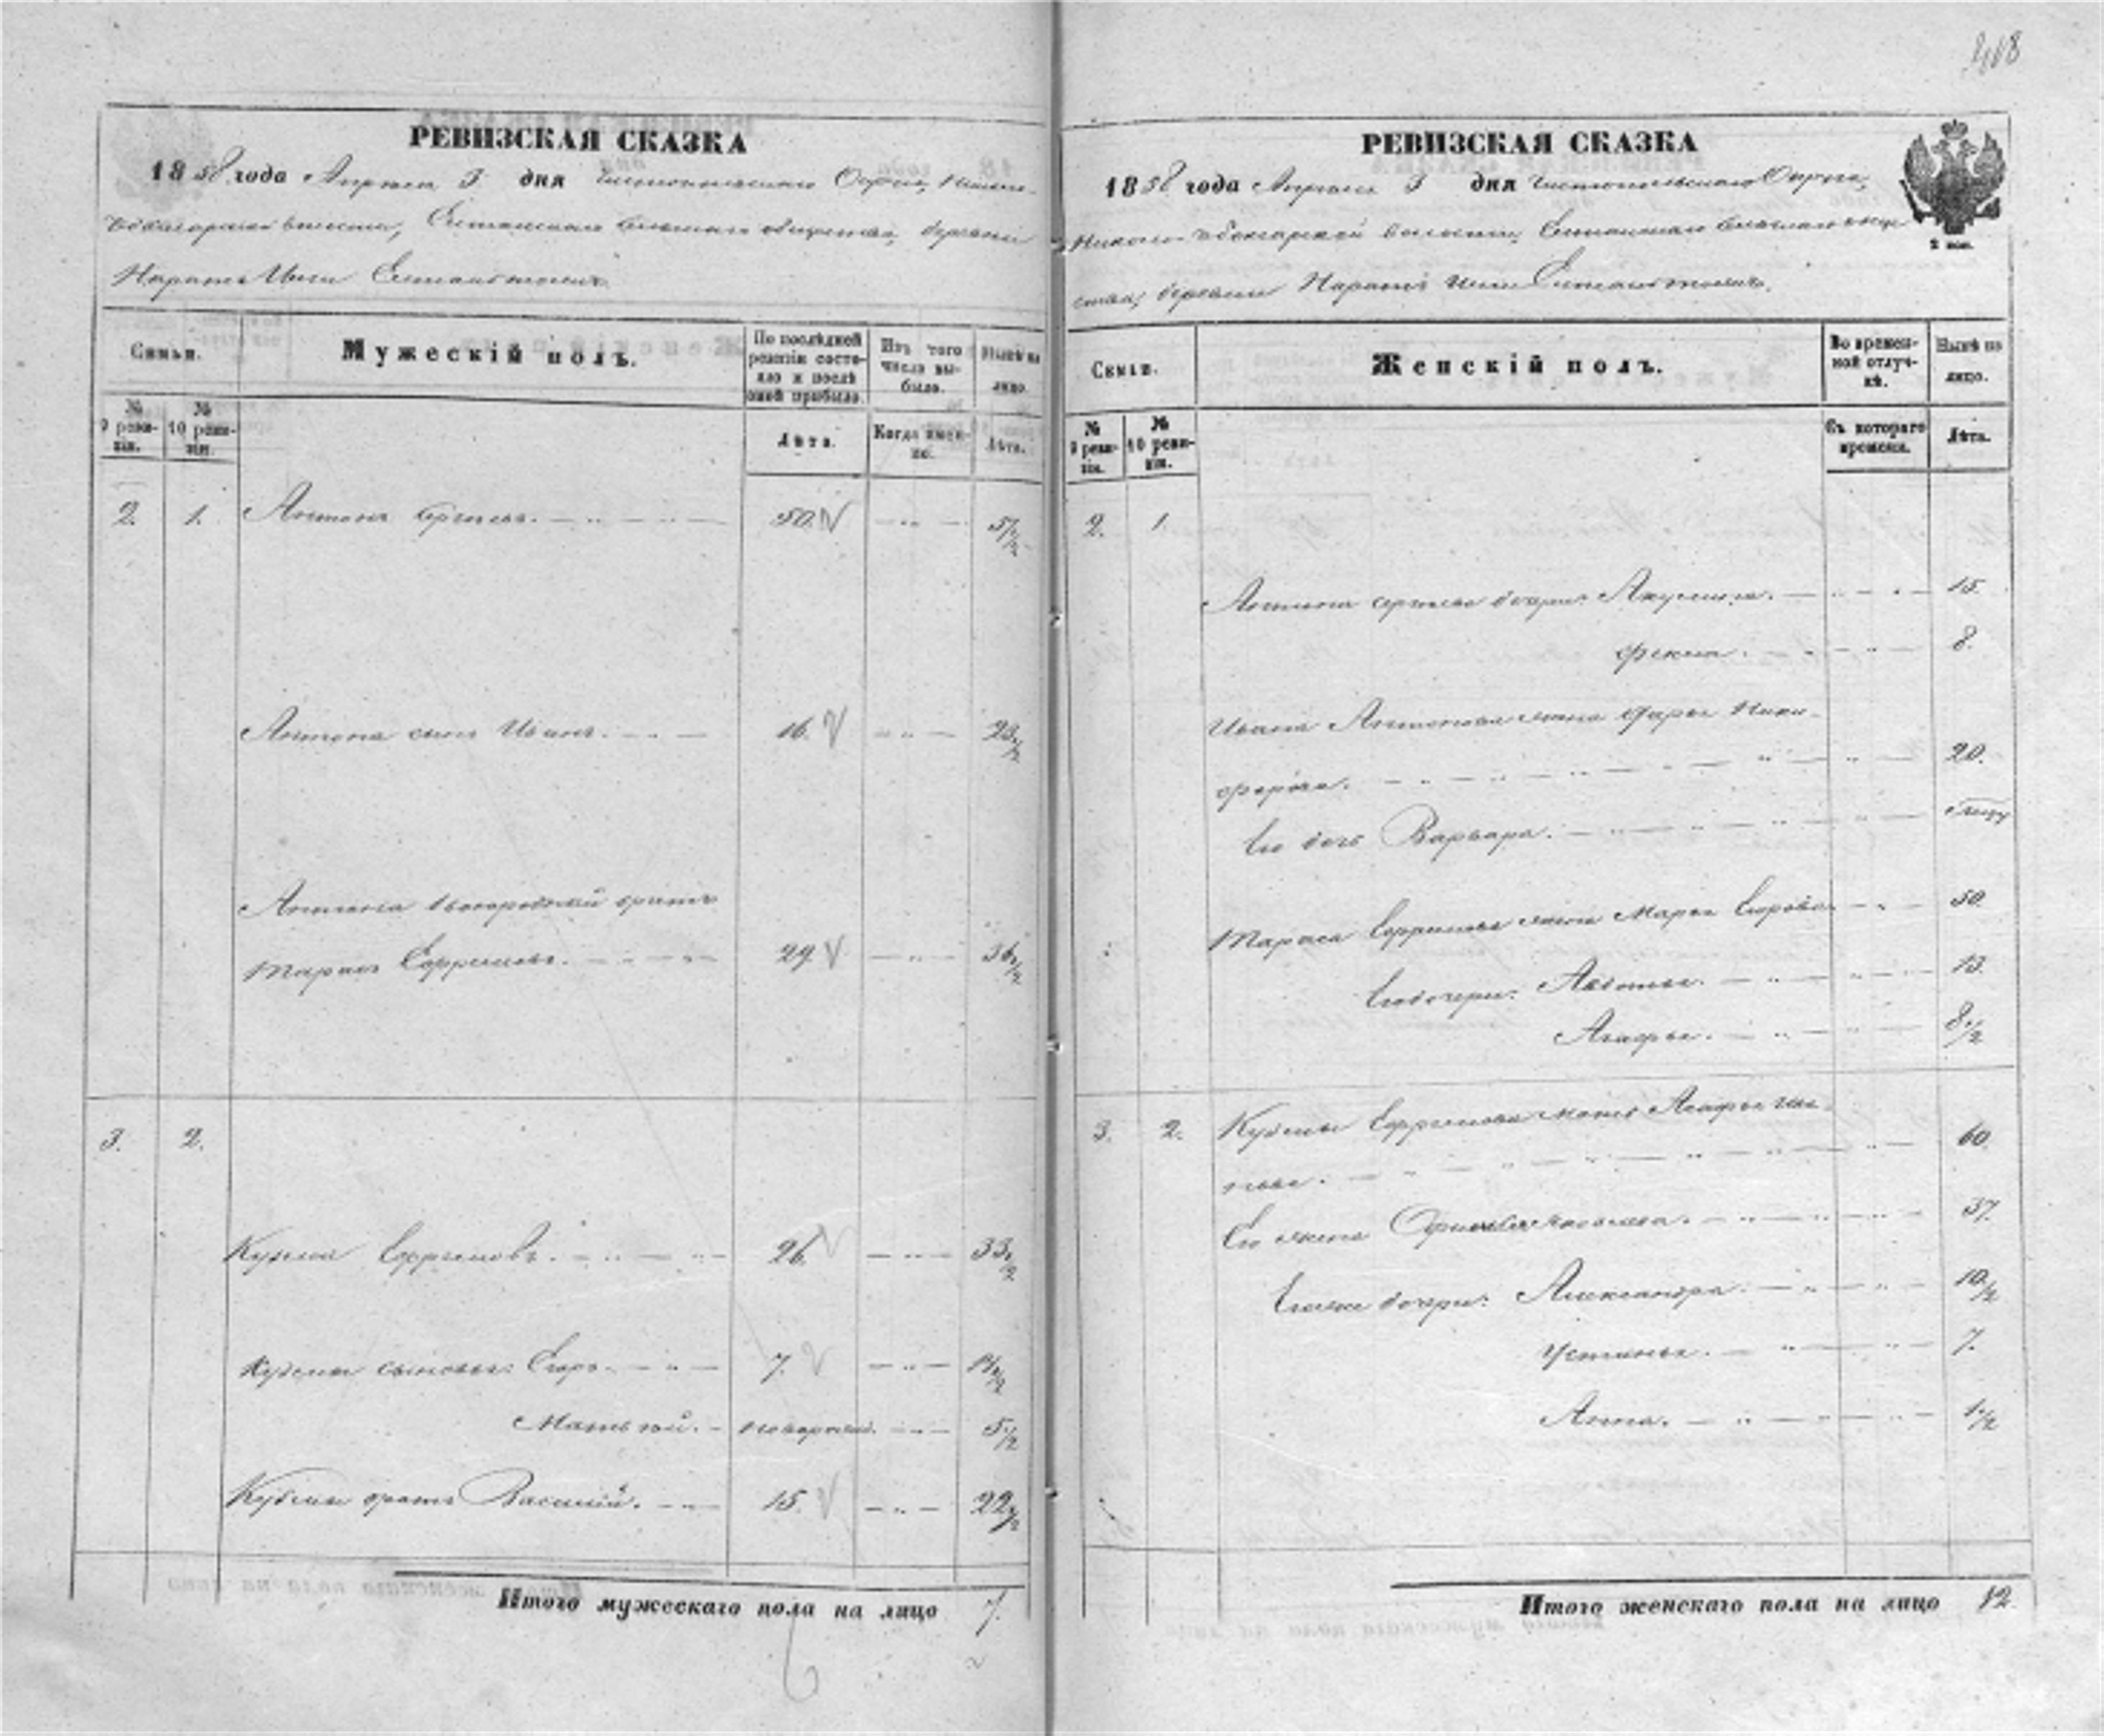 408
РЕВИЗСКАЯ СКАЗКА
1858 года Апреля 3 дня Чистопольскаго Округа,
волости, общества, деревни
Нарат
Семьи.
Мужескій полъ.
По послѣдней ревизіи состояло и послѣ оной прибыло.
Изъ того числа выбыло.
Нынѣ на лицо.
№ 9 ревизіи.
№ 10 ревизіи.
Лѣта.
Когда именно.
Лѣта.
2. 1. Антонъ Сергѣевъ. 50. 57 1/2
Антона сынъ Иванъ. 16. 23 1/2
Антона двоюродный братъ
Тарасъ Ефремовъ. 29 36 1/2
3. 2.
Кузма Ефремовъ. 26. 33 1/2
Кузмы сыновья: Егоръ. 7. 14 1/2
Матвей. новорожд. 5 1/2
Кузмы братъ Василій. 15. 22 1/2
Итого мужескаго пола на лицо 7.
РЕВИЗСКАЯ СКАЗКА
1858 года Апреля 3 дня Чистопольскаго Округа,
волости,
ства, деревни Нарат
2 коп.
Семьи.
Женскій полъ.
Во временной отлучкѣ.
Нынѣ на лицо.
№ 9 ревизіи.
№ 10 ревизіи.
Съ котораго времени.
Лѣта.
2. 1.
Антона Сергѣева дочери: Акулина. 15.
Фекла. 8.
Ивана Антонова жена Дарья Ники-
форова. 20.
Его дочь Варвара.
Тараса Ефремова жена Марья Егорова 50.
Его дочери: Авдотья. 13.
Агафья. 8 1/2
3. 2. Кузмы Ефремова мать Агафья
60.
Его жена 37.
Ихже дочери: Александра. 10 1/2
Устинья. 7.
Анна. 1 1/2
Итого женскаго пола на лицо 12.